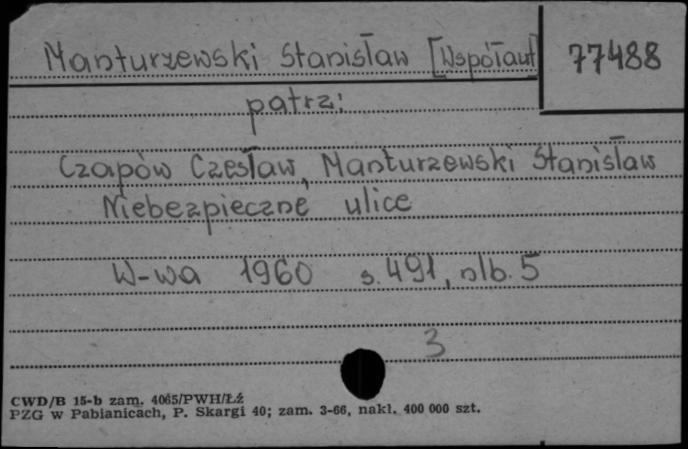 Manturzewski Stanisław [Współaut 77488
patrz:
Czapów Czesław, Manturzewski Stanisław
Niebezpieczne ulice
W-wa 1960 s. 491, nlb. 5
3
CWD/B 15-b zam. 4065/PWH/Łź
PZG w Pabianicach, P. Skargi 40; zam. 3-66, nakl. 400 000 szt.